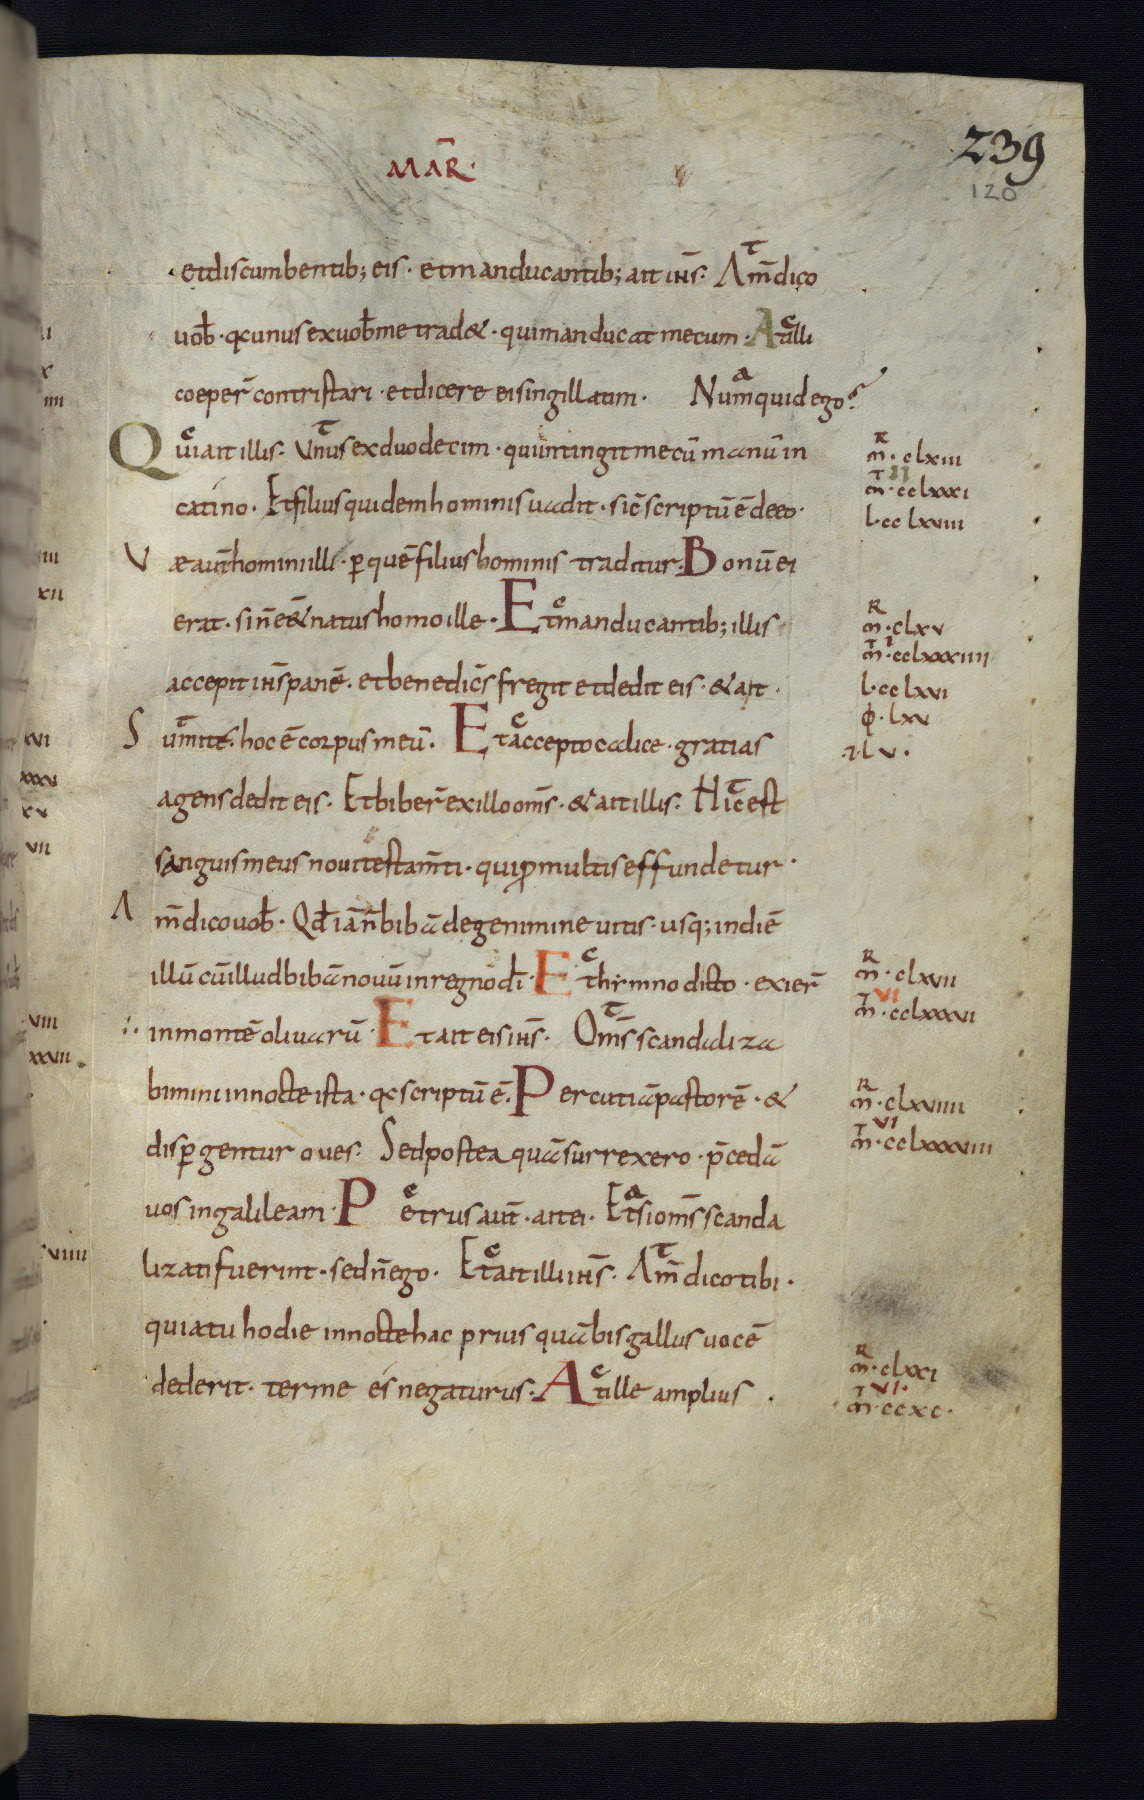 MAR̄·
239
120
et discumbentib; eis · et manducantib; ait ih̄s · Am̄ dico
uob̄ · q̄ unus ex uob̄ me trad& · qui manducat mecum · At illi
coeper̄ contristari · et dicere ei singillatim · Numquid ego?
Qui ait illis · Unus ex duodecim · qui intingit mecū manū in
catino · Et filius quidem hominis uadit · sic̄ scriptū ē de eo ·
Væ aut̄ homini illi · p̱ quē filius hominis traditur · Bonū ei
erat · si n̄ eēt natus homo ille · Et manducantib; illis
accepit ih̄s panē · et benedic̄s fregit et dedit eis · & ait ·
Sumite · hoc ē corpus meū · Et accepto calice · gratias
agens dedit eis · Et biber̄ ex illo om̄s · & ait illis · Hic est
sanguis meus noui testam̄ti · qui p̱ multis effundetur ·
Am̄ dico uob̄ · Qđ iā n̄ bibā de genimine uitis · usq; in diē
illū cū illud bibā nouū in regno dī · Et hymno dicto · exier̄
in montē oliuarū · Et ait eis ih̄s · Om̄s scandaliza
bimini in nocte ista · q̄ scriptū ē · Percutiā pastorē · &
disp̱gentur oues · Sed postea quā surrexero · p̄cedā
uos in galileam · Petrus aut̄ · ait ei · Et si om̄s scanda
lizati fuerint · sed n̄ ego · Et ait illi ih̄s · Am̄ dico tibi ·
quia tu hodie in nocte hac prius quā bis gallus uocē
dederit · ter me es negaturus · At ille amplius ·
R
m̄ · clxiii
II
m̄ · cclxxxi
l · cclxviii
R
m̄ · clxv
I
m̄ · cclxxxiiii
l · cclxvi
φ · lxv
· l v ·
R
m̄ · clxvii
VI
m̄ · cclxxxvi
R
m̄ · clxviiii
VI
m̄ · cclxxxviii
R
m̄ · clxxi
VI ·
m̄ · ccxc ·
xii
xvi
xxxv
xv
vii
viii
xxvii
viiii